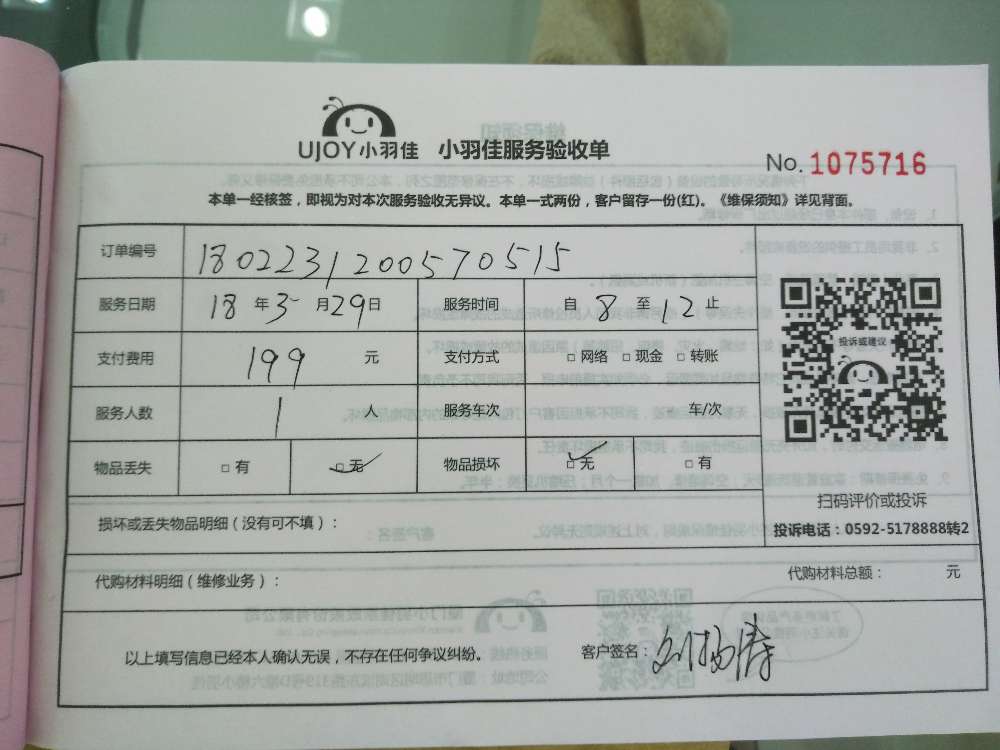 UJOY小羽佳 小羽佳服务验收单
No. 1075716
本单一经核签，即视为对本次服务验收无异议。本单一式两份，客户留存一份(红)。《维保须知》详见背面。
订单编号 180223120057 0515
服务日期 18 年 3 月 29 日 服务时间 自 8 至 12 止
投诉或建议
支付费用 199 元 支付方式 □ 网络 □ 现金 □ 转账
服务人数 1 人 服务车次 车/次
物品丢失 □ 有 □ 无 物品损坏 □ 无 □ 有
扫码评价或投诉
损坏或丢失物品明细（没有可不填）：
投诉电话：0592-5178888转2
代购材料明细（维修业务）： 代购材料总额： 元
以上填写信息已经本人确认无误，不存在任何争议纠纷。 客户签名：